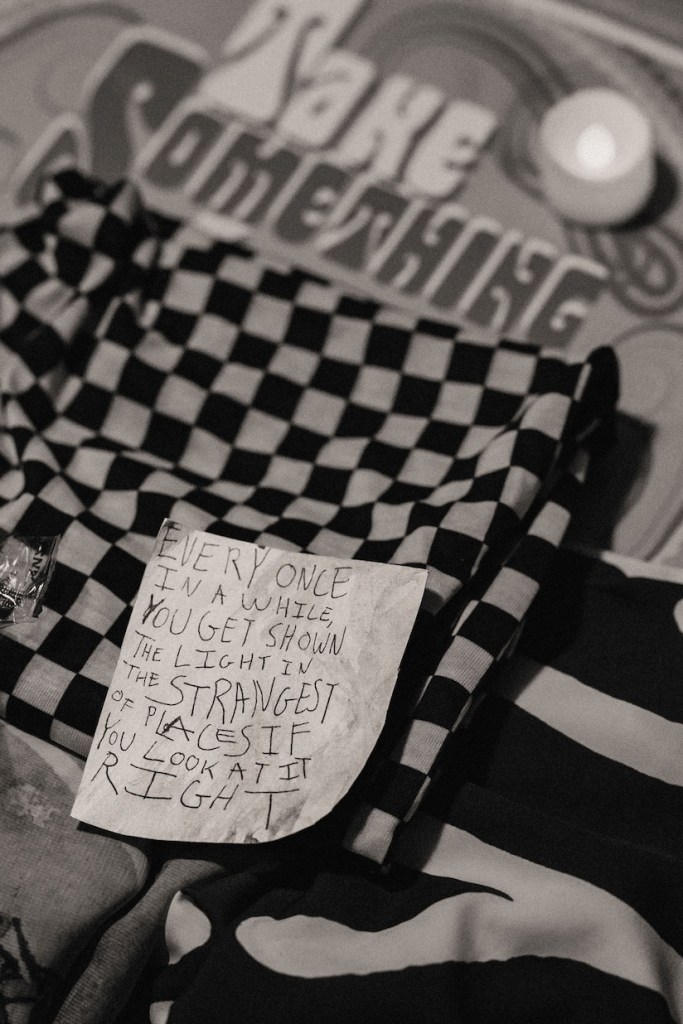 Take
SOMETHING
EVERY ONCE
IN A WHILE,
YOU GET SHOWN
THE LIGHT IN
THE STRANGEST
OF PLACES IF
YOU LOOK AT IT
RIGHT